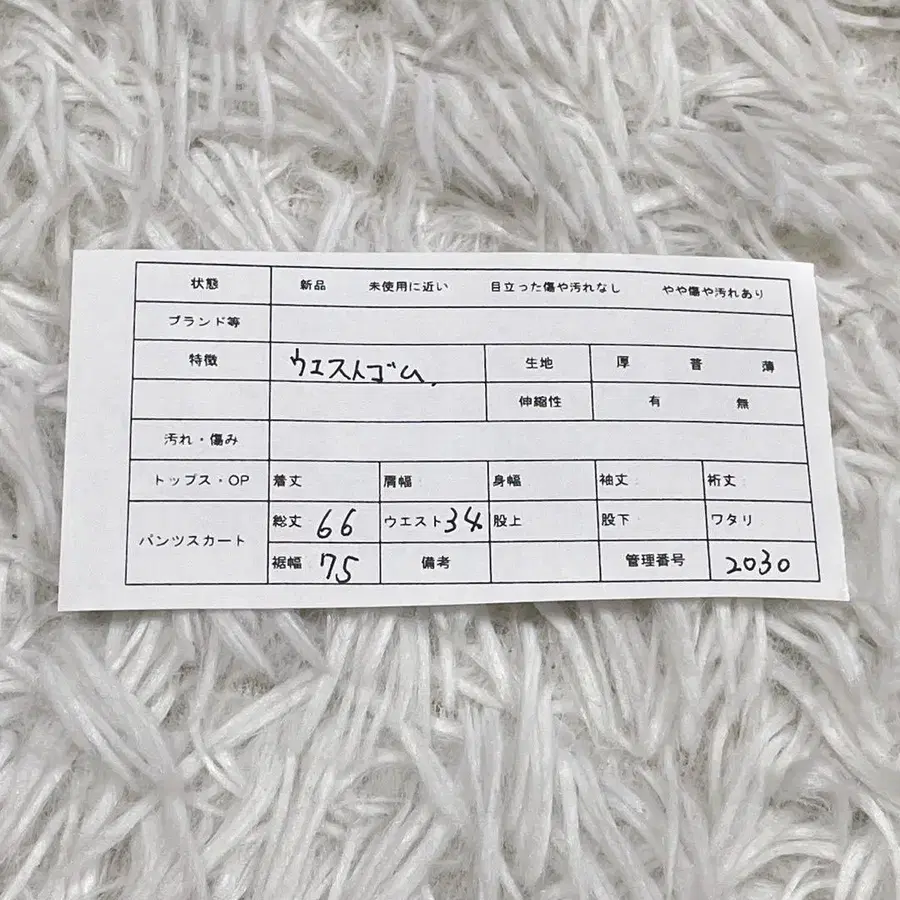 状態 新品 未使用に近い 目立った傷や汚れなし やや傷や汚れあり
ブランド等
特徴 ウエストゴム. 生地 厚 普 薄
伸縮性 有 無
汚れ・傷み
トップス・OP 着丈 肩幅 身幅 袖丈 裄丈
パンツスカート 総丈 66 ウエスト 34 股上 股下 ワタリ
裾幅 75 備考 管理番号 2030